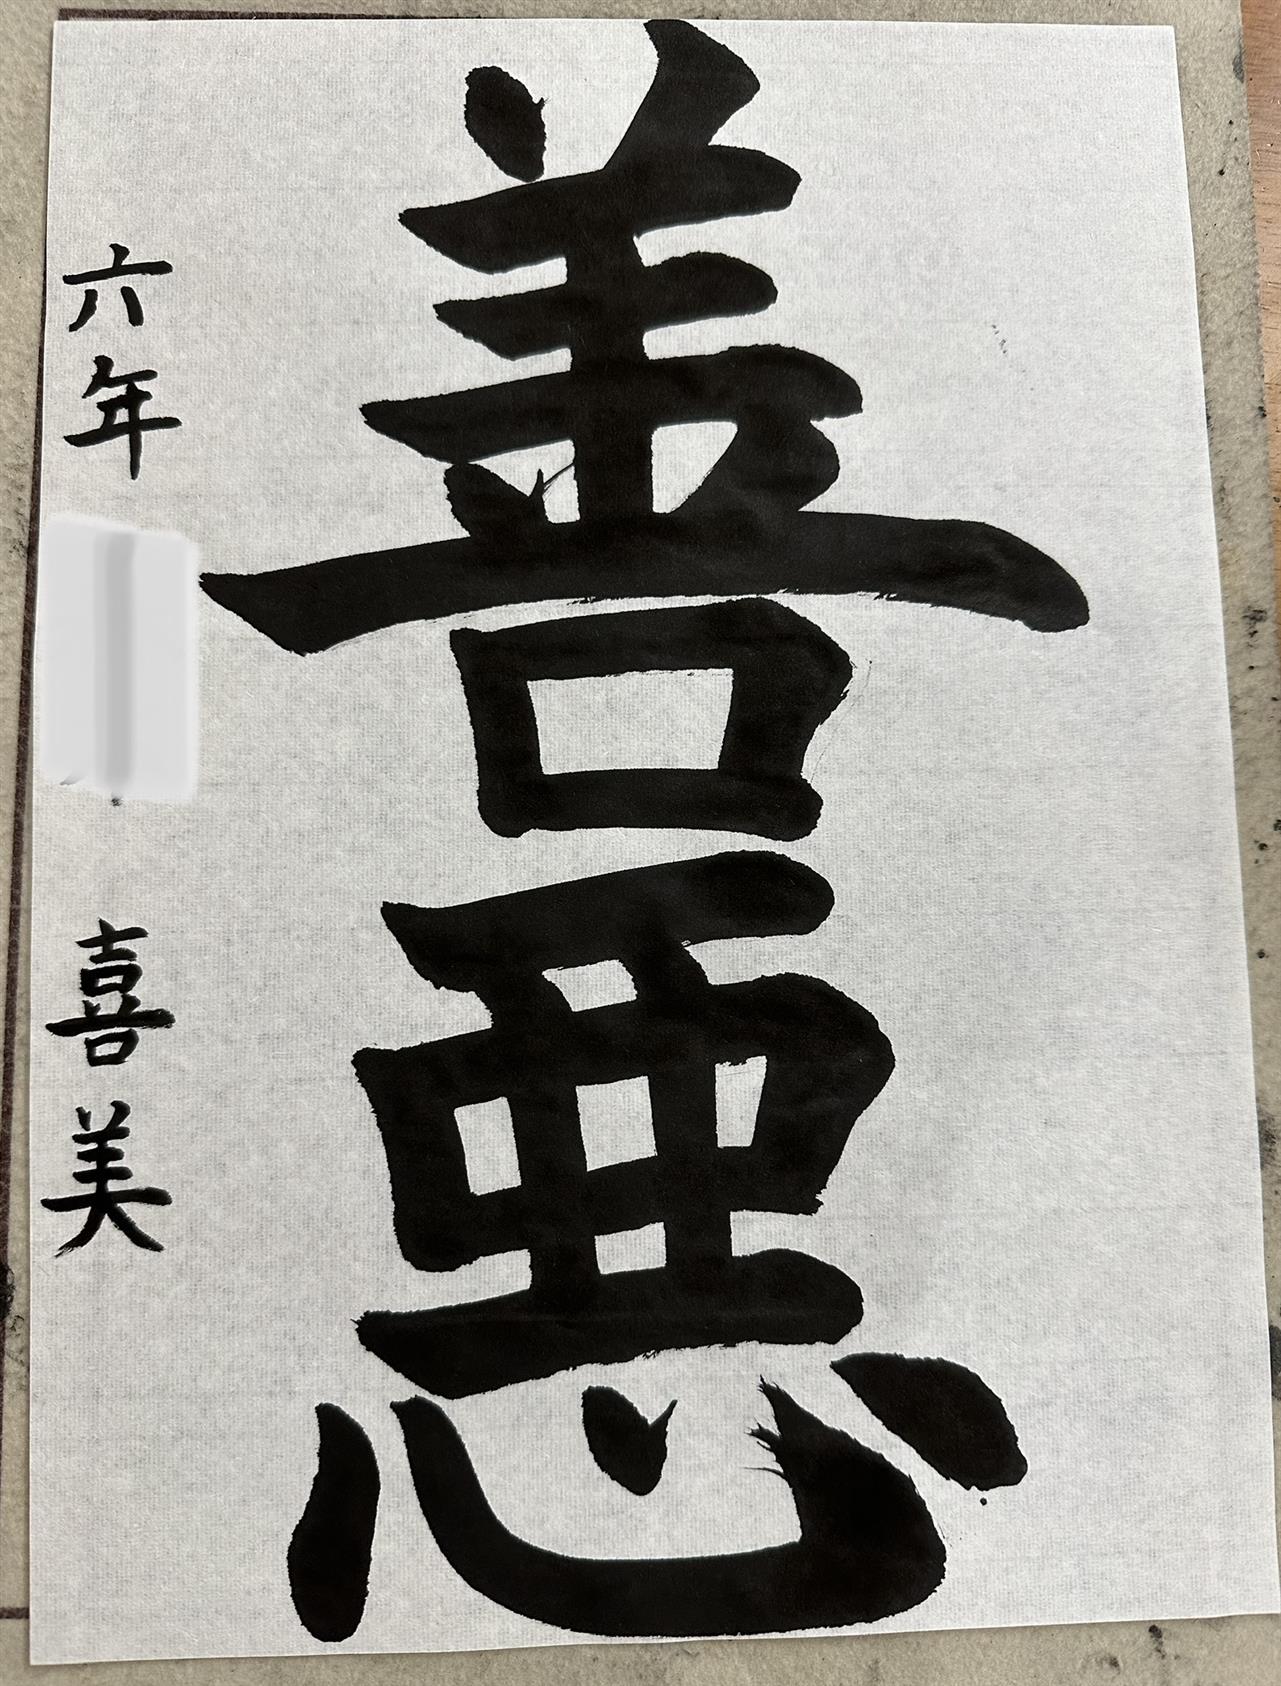 善悪
六年 喜美